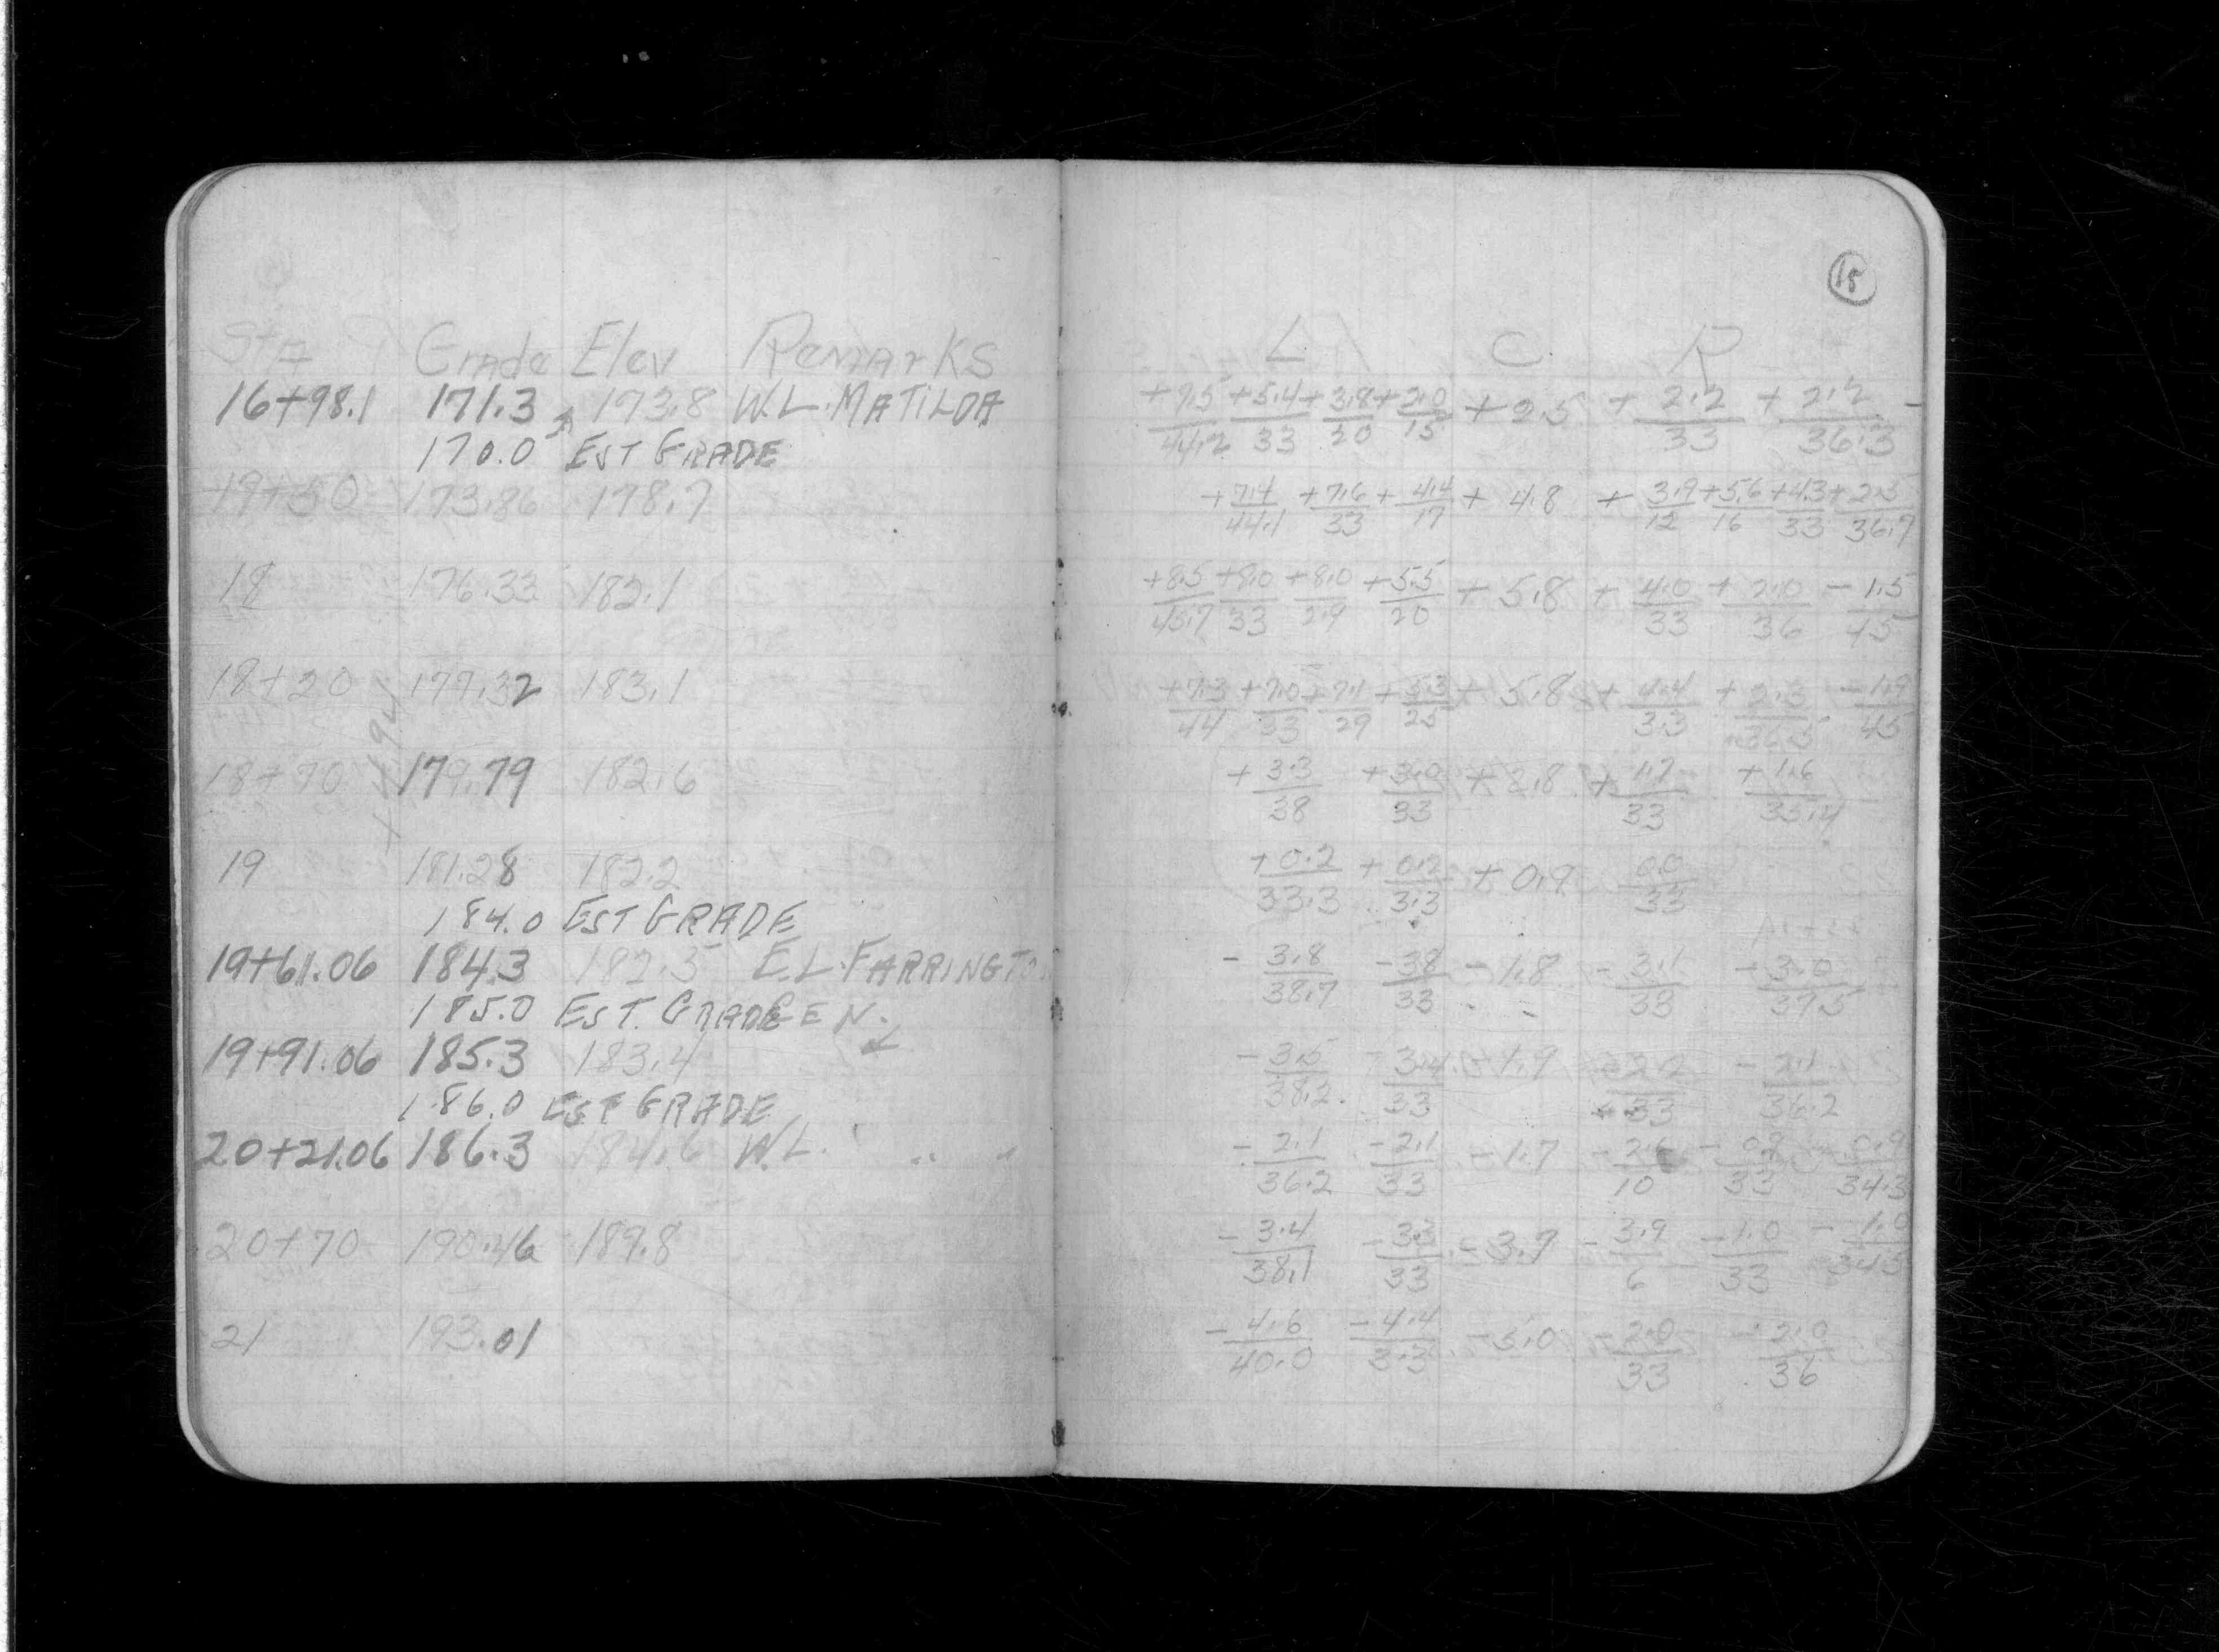 Sta Grade Elev Remarks
16+98.1 171.3 173.8 W.L. MATILDA
170.0 EST GRADE
173.86 178.7
18 176.33 182.1
18+20 177.32 183.1
18+70 179.79 182.6
19 181.28 182.2
184.0 EST GRADE
19+61.06 184.3 182.5 E.L. FARRINGTO
185.0 EST. GRADE CEN.
19+91.06 185.3 183.4
186.0 EST GRADE
20+21.06 186.3 184.6 W.L. " "
20+70 190.46 189.8
21 193.01
15
L C R
+5.4 +3.8 +2.0 +2.5 +2.2 +2.2
44.2 33 20 15 33 36.3
+7.4 +7.6 +4.4 +4.8 +3.9 +5.6 +4.3 +2.5
44.1 33 17 12 16 33 36.7
+8.5 +8.0 +8.0 +5.5 +5.8 +4.0 +2.0 -1.5
45.7 33 29 20 33 36 45
+7.3 +7.0 +7.1 +5.3 +5.8 +4.4 +2.3 -1.9
44 33 29 25 33 36.5 45
+3.3 +3.0 +2.8 +1.7 +1.6
38 33 33 35.4
+0.2 +0.2 +0.9 0.0
33.3 33 33
-3.8 -3.8 -1.8 -3.1 -3.0
38.7 33 33 37.5
-3.5 -3.4 -1.9 -2.2 -2.1
38.2 33 33 36.2
-2.1 -2.1 -1.7 -2.6 -0.9 -0.9
36.2 33 10 33 34.3
-3.4 -3.3 -3.9 -3.9 -1.0 -1.0
38.1 33 6 33 34.5
-4.6 -4.4 -3.0 -2.0 -2.0
40.0 33 33 36